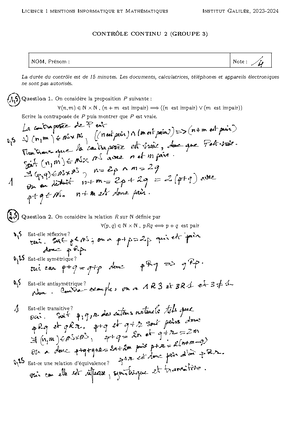 LICENCE 1 MENTIONS INFORMATIQUE ET MATHÉMATIQUES INSTITUT GALILÉE, 2023-2024
CONTRÔLE CONTINU 2 (GROUPE 3)
NOM, Prénom : Note : /4
La durée du contrôle est de 15 minutes. Les documents, calculatrices, téléphones et appareils électroniques
ne sont pas autorisés.
1,5 Question 1. On considère la proposition P suivante :
∀(n, m) ∈ N × N, (n + m est impair) ⟹ ((n est impair) ou (m est impair))
Écrire la contraposée de P puis montrer que P est vraie.
La contraposée de P est
0,5 ∀(n, m) ∈ N×N, ((n est pair) ∧ (m est pair)) ⟹ (n+m est pair)
Montrons que la contraposée est vraie, donc que P est vraie.
Soit (n, m) ∈ N×N avec n et m pairs.
∃(p, q) ∈ N×N, n = 2p ∧ m = 2q
1 On en déduit n+m = 2p + 2q = 2(p+q) avec
p+q ∈ N. n+m est donc pair.
2,5 Question 2. On considère la relation R sur N définie par
∀(p, q) ∈ N × N, pRq ⟺ p + q est pair
0,5 Est-elle réflexive ?
oui. Soit p ∈ N, on a p+p = 2p qui est pair
donc pRp.
Est-elle symétrique ?
oui car p+q = q+p donc pRq ⟹ qRp.
0,5 Est-elle antisymétrique ?
non. Contre-exemple : on a 1R3 et 3R1 et 3≠1.
1 Est-elle transitive ?
oui. Soit p, q, r des entiers naturels tels que
pRq et qRr. p+q et q+r sont pairs donc
∃(n, m) ∈ N×N, p+q = 2n et q+r = 2m
On a donc
p+r est donc pair d'où pRr.
Est-ce une relation d'équivalence ?
oui car elle est réflexive, symétrique et transitive.